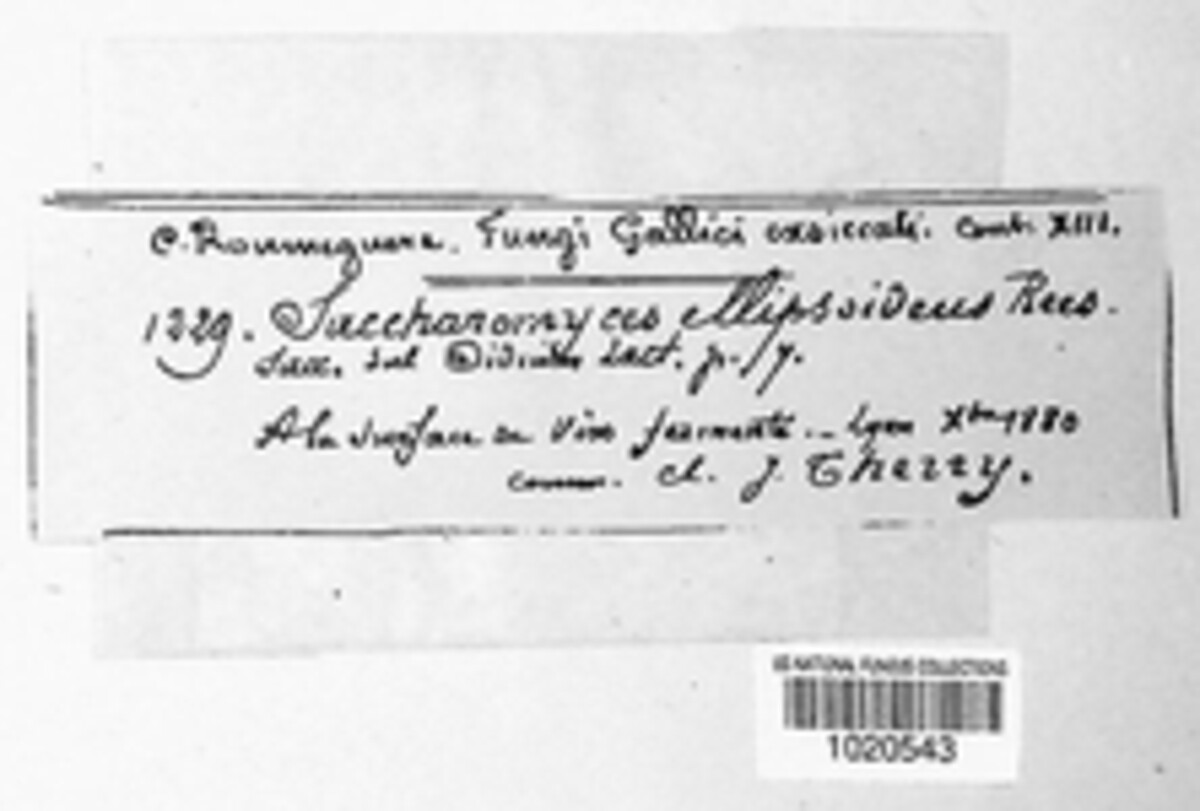 C. Roumeguere. Fungi Gallici exsiccati. Cent. XIII.
1229. Saccharomyces ellipsoideus Rees.
Sacc. Oidium lact. p. p.
A la surface du Vin fermenté. – Lyon Xbre 1880
cl. J. Therry.
US NATIONAL FUNGUS COLLECTIONS
1020543